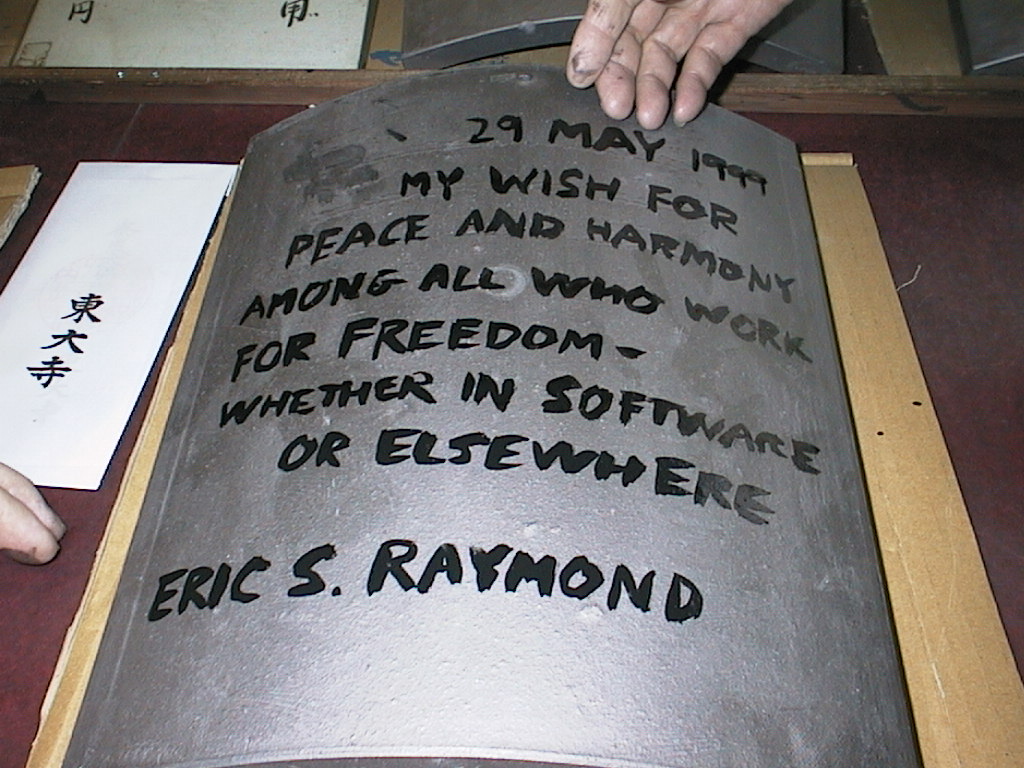 円 用
29 MAY 1999
MY WISH FOR
PEACE AND HARMONY
AMONG ALL WHO WORK
FOR FREEDOM-
WHETHER IN SOFTWARE
OR ELSEWHERE
ERIC S. RAYMOND
東大寺